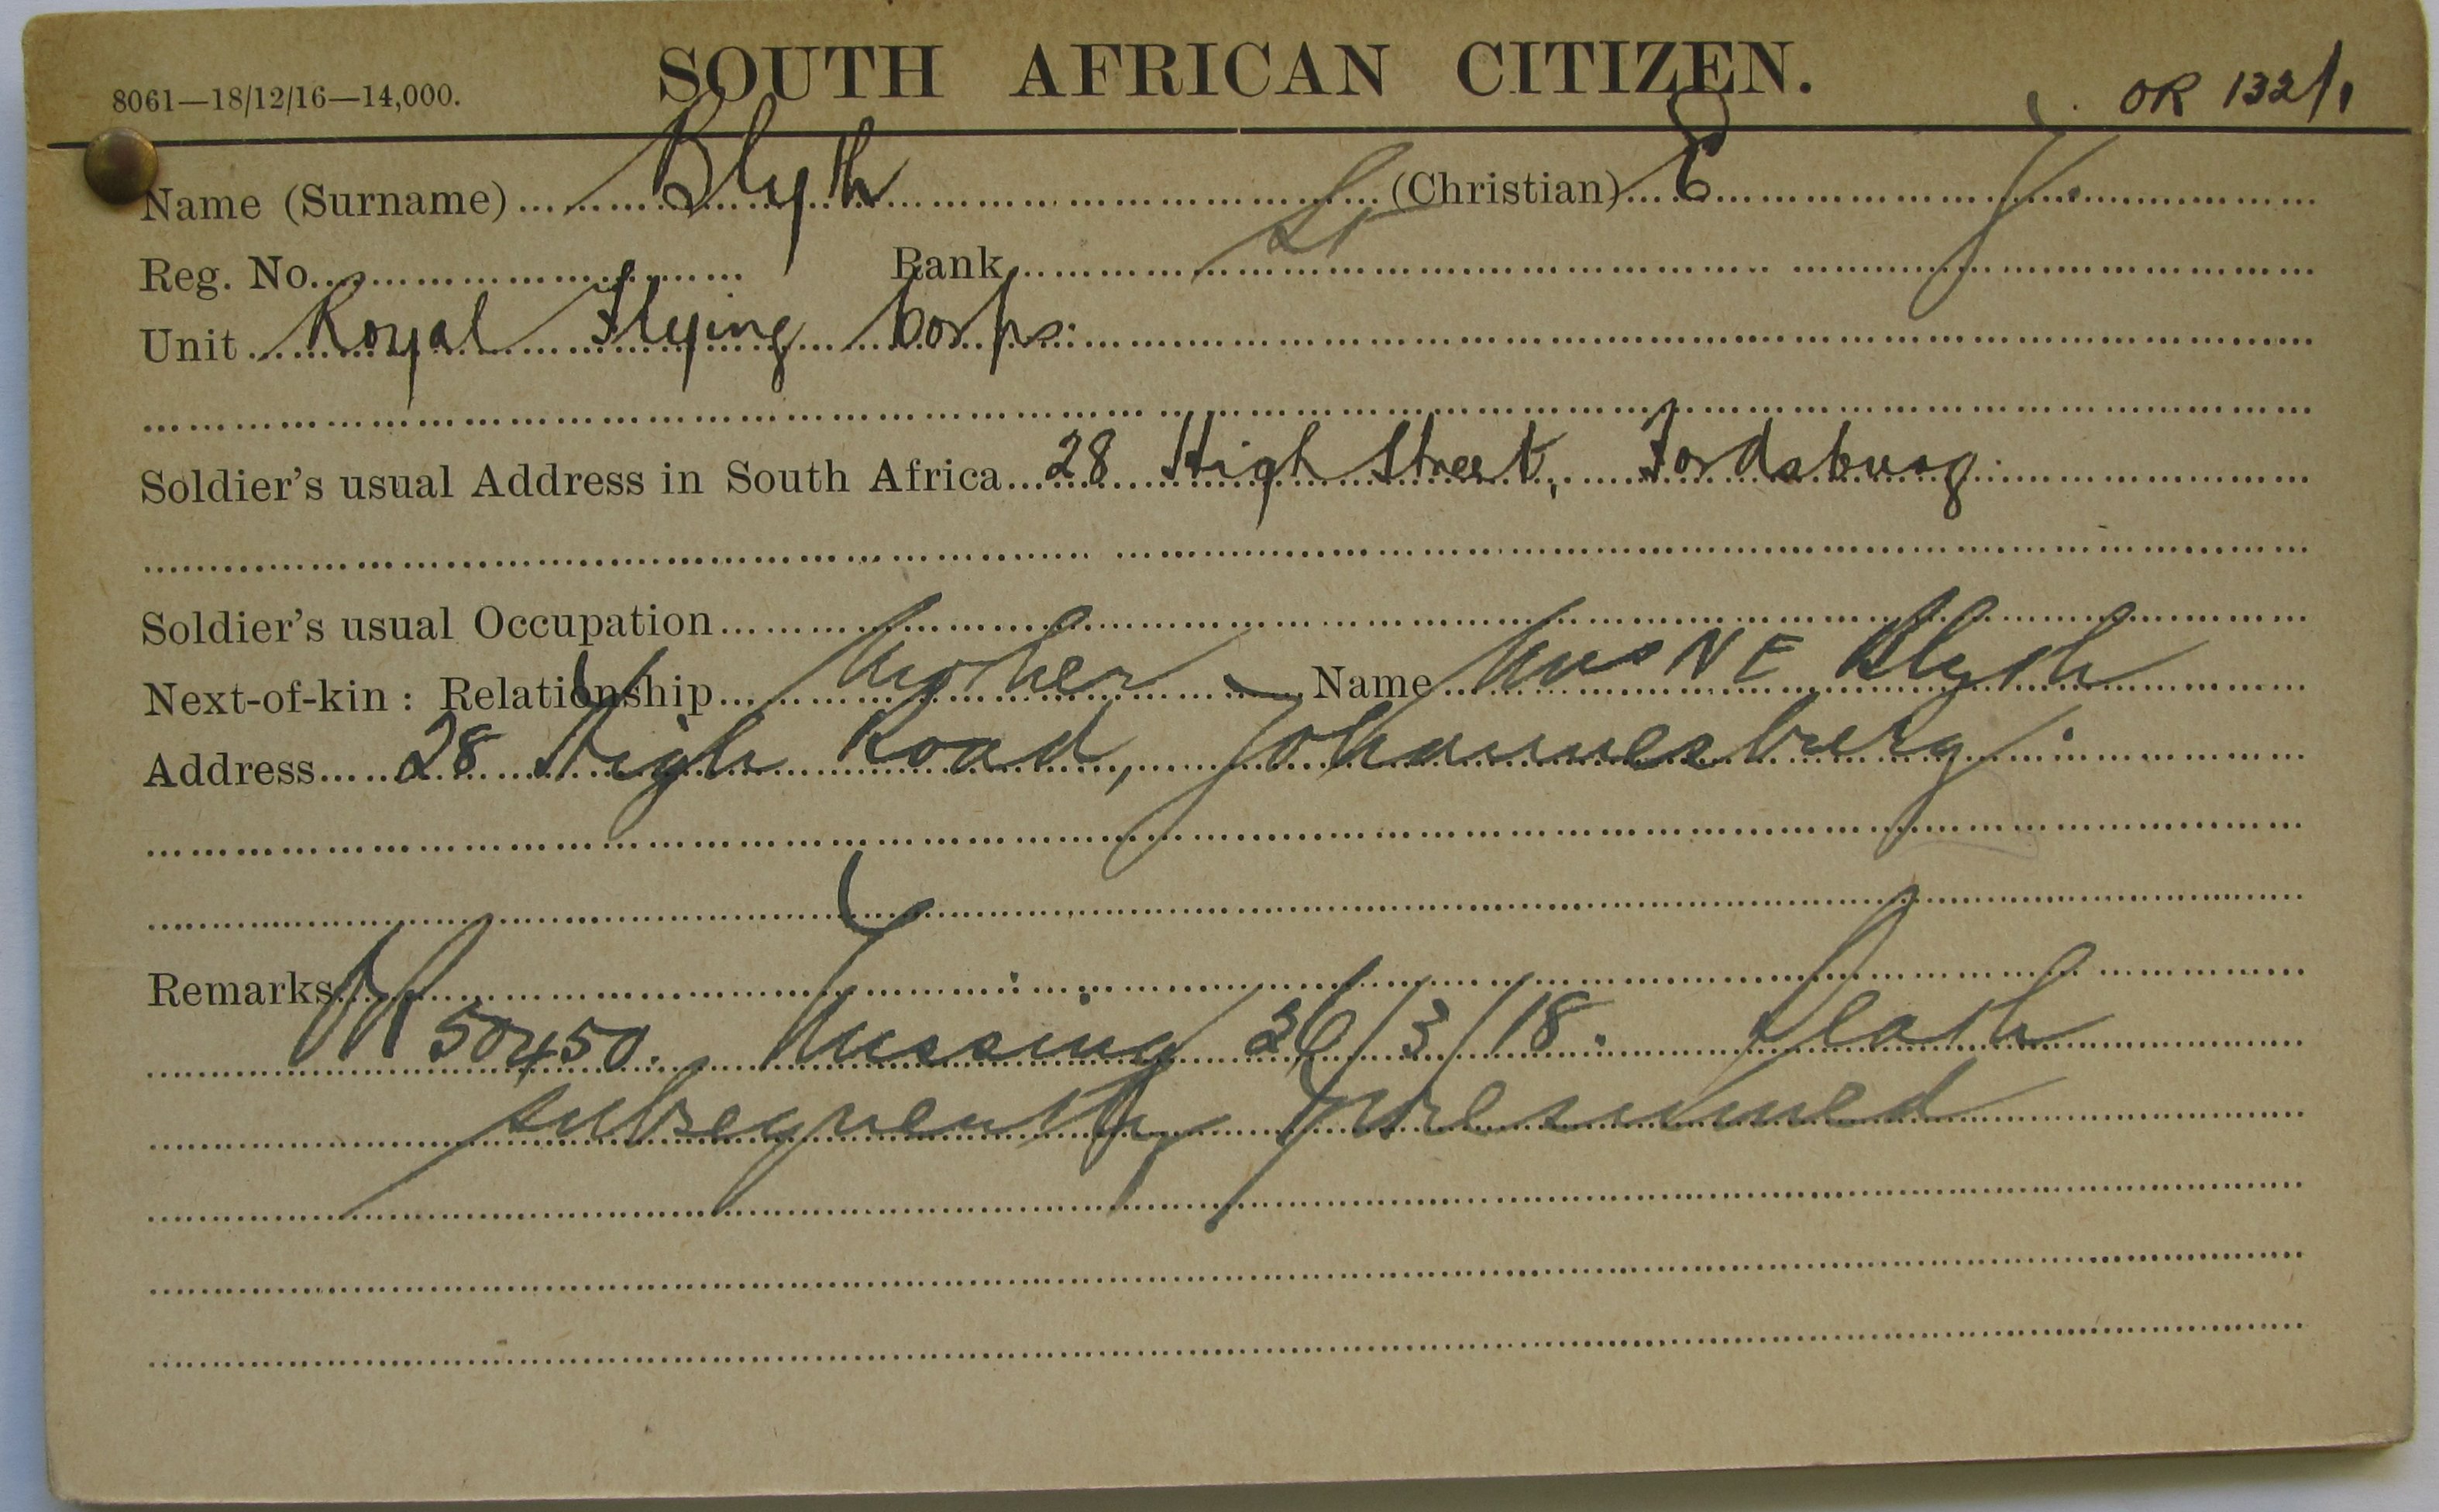 SOUTH AFRICAN CITIZEN.
8061—18/12/16—14,000.
OR 132/1
Name (Surname) Blyth (Christian) E J.
Reg. No. Rank Lt
Unit Royal Flying Corps.
Soldier's usual Address in South Africa 28 High Street, Fordsburg.
Soldier's usual Occupation
Next-of-kin : Relationship Mother Name Mrs N E Blyth
Address 28 High Road, Johannesburg.
Remarks
50450. Missing 26/3/18. Death
subsequently presumed